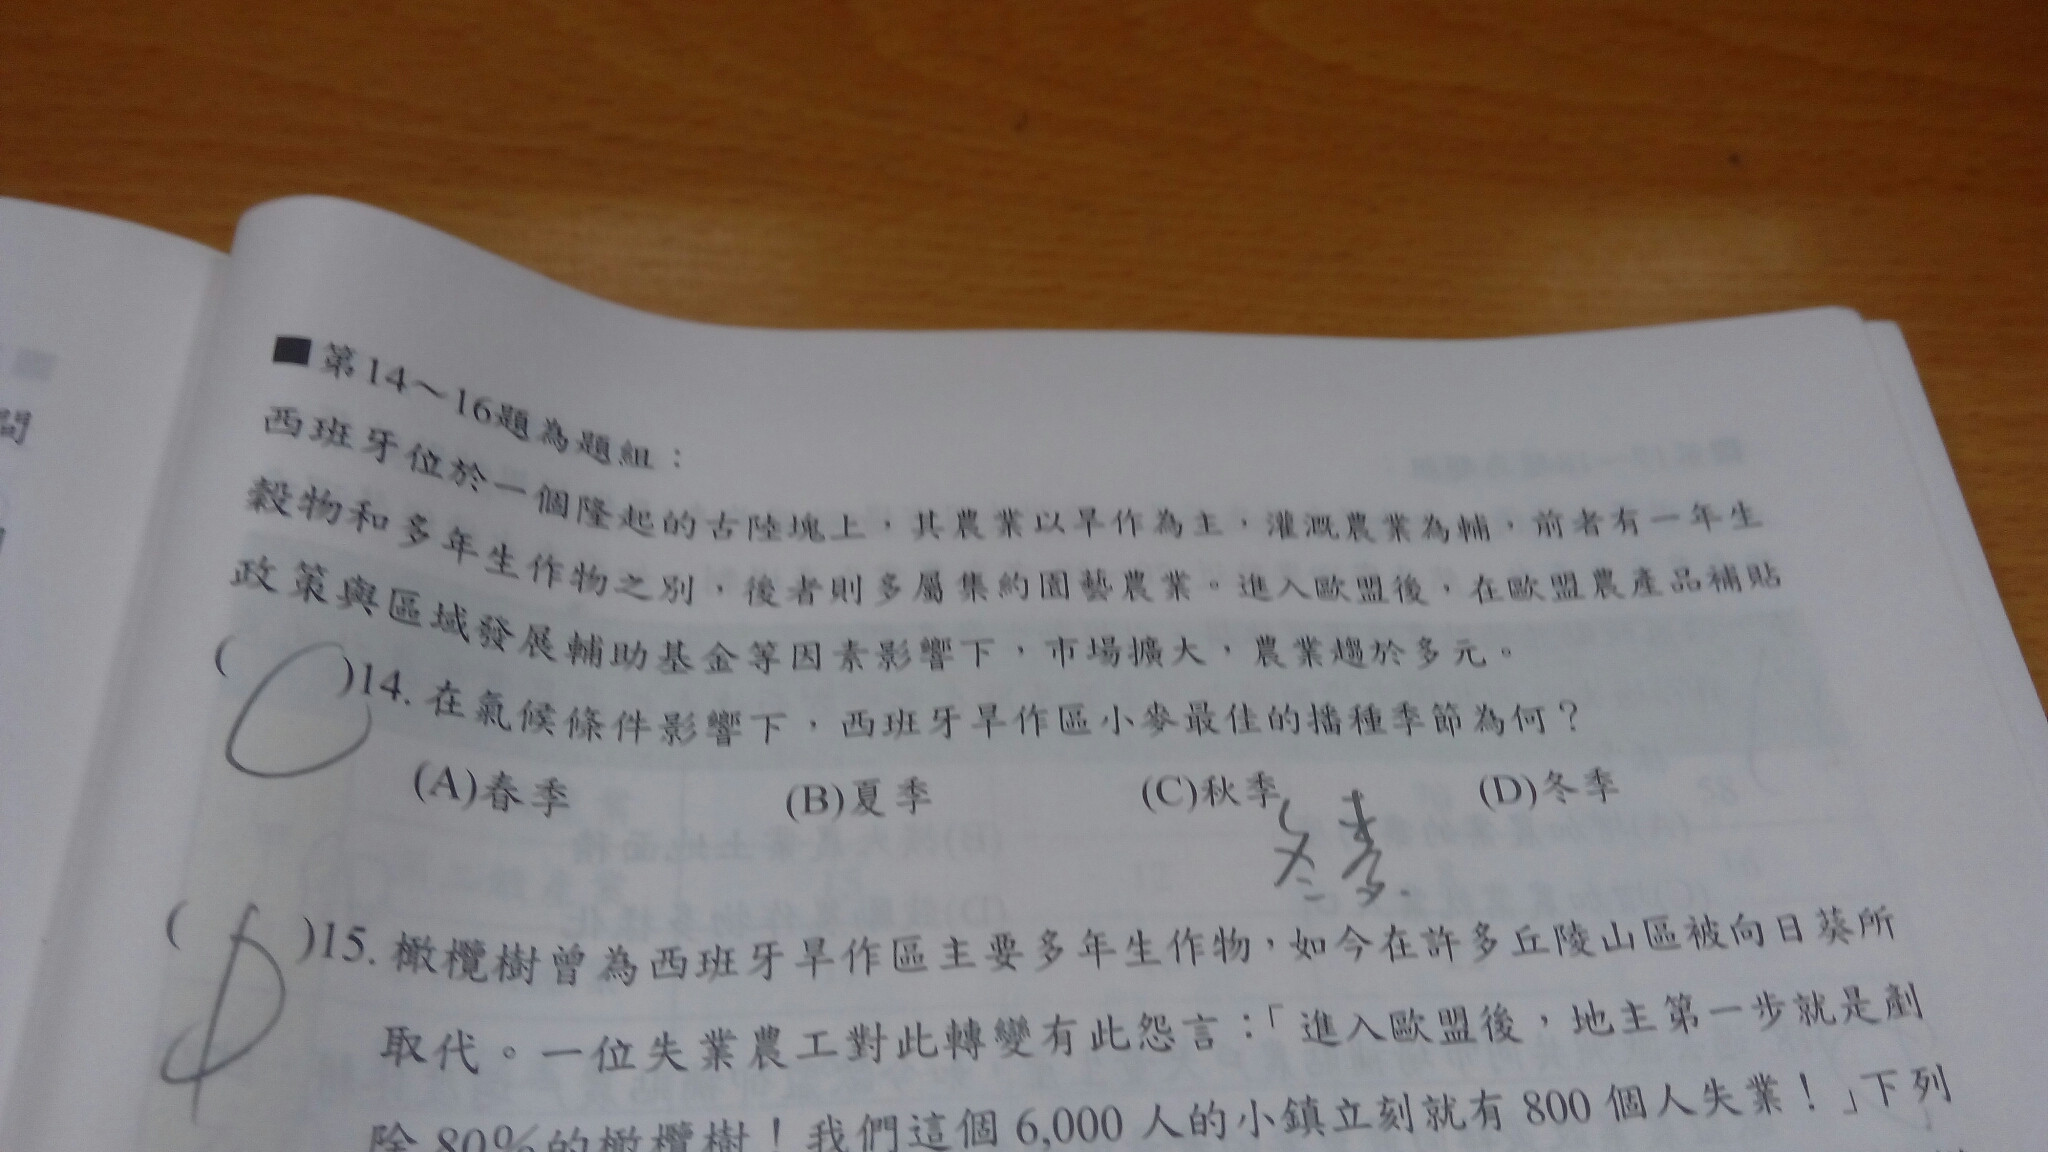 問
■第14～16題為題組：
西班牙位於一個隆起的古陸塊上，其農業以旱作為主，灌溉農業為輔，前者有一年生
穀物和多年生作物之別，後者則多屬集約園藝農業。進入歐盟後，在歐盟農產品補貼
政策與區域發展輔助基金等因素影響下，市場擴大，農業趨於多元。
( C )14. 在氣候條件影響下，西班牙旱作區小麥最佳的播種季節為何？
(A)春季 (B)夏季 (C)秋季 (D)冬季
冬麥
( D )15. 橄欖樹曾為西班牙旱作區主要多年生作物，如今在許多丘陵山區被向日葵所
取代。一位失業農工對此轉變有此怨言：「進入歐盟後，地主第一步就是剷
除80%的橄欖樹！我們這個6,000人的小鎮立刻就有800個人失業！」下列